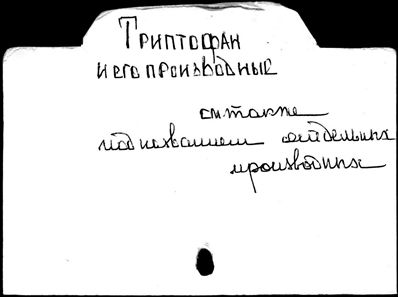 Триптофан
и его производные
см также
под названием отдельных
производных